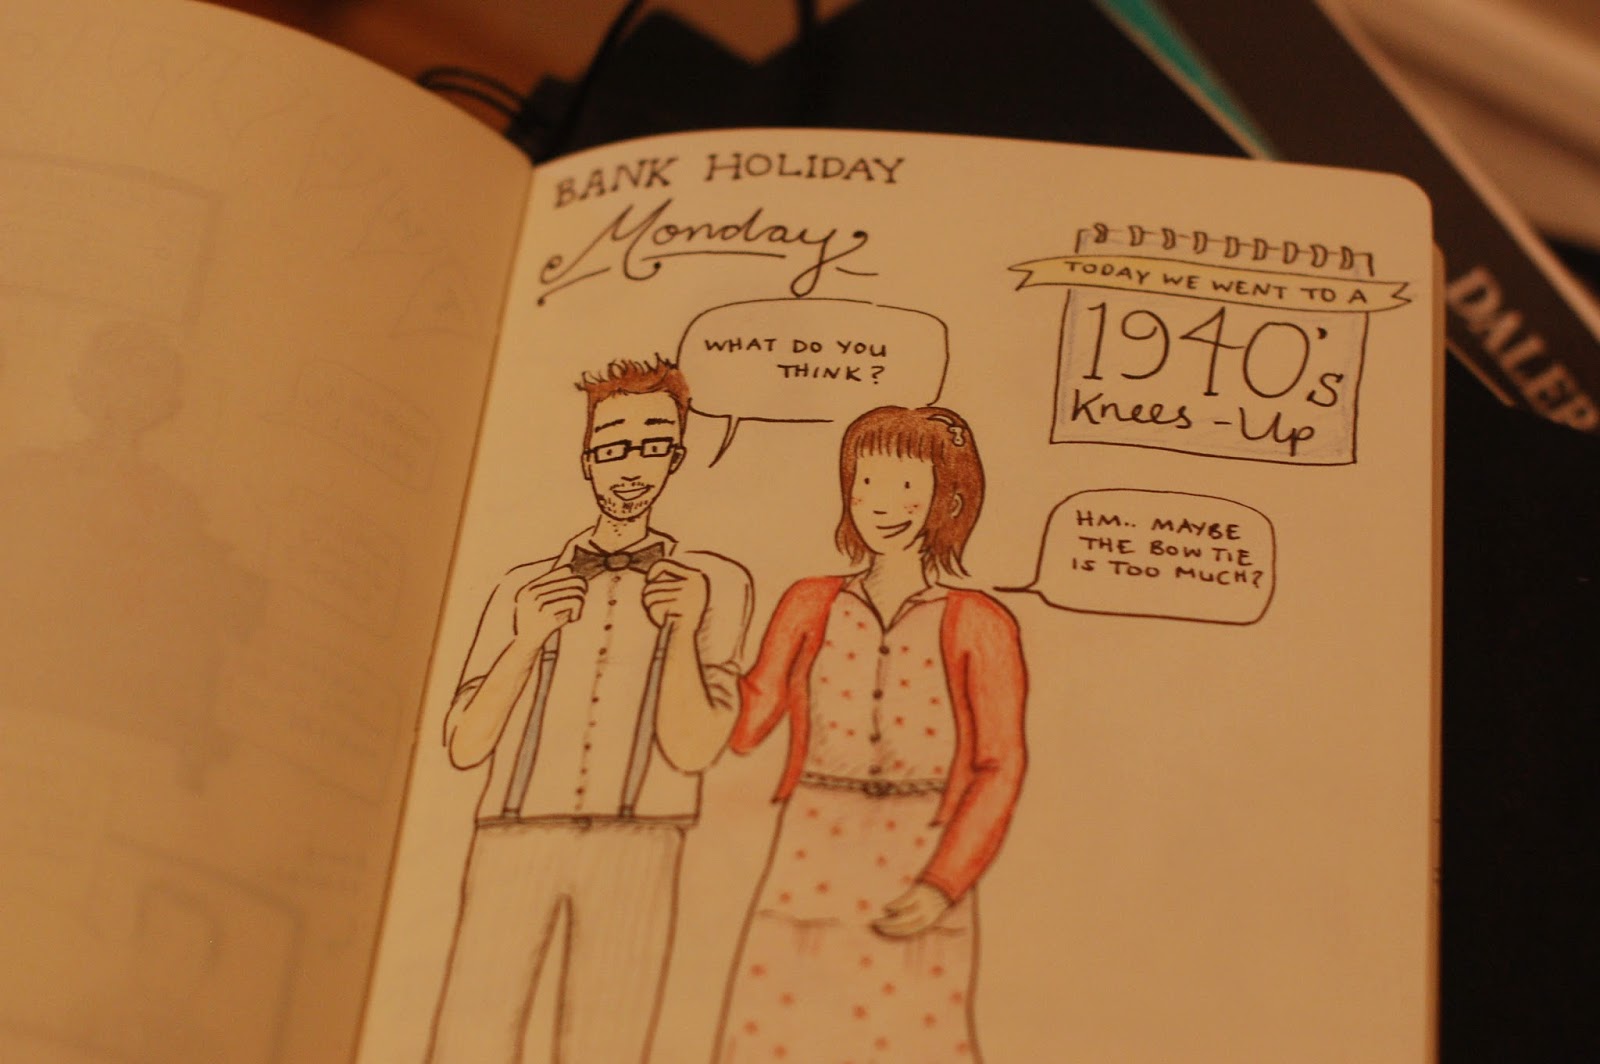 BANK HOLIDAY
Monday
TODAY WE WENT TO A
1940's
Knees-Up
WHAT DO YOU
THINK?
HM.. MAYBE
THE BOW TIE
IS TOO MUCH?
DALER